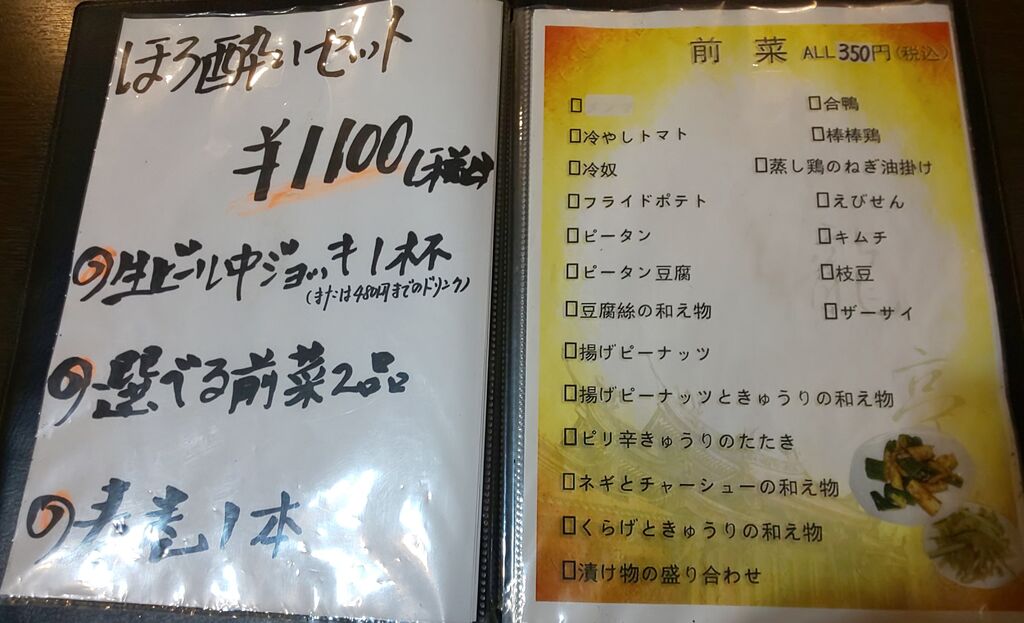 ほろ酔いセット
¥1100(税込)
生ビール中ジョッキ1杯
(または480円までのドリンク)
選べる前菜2品
春巻1本
前菜 ALL 350円(税込)
合鴨
冷やしトマト 棒棒鶏
冷奴 蒸し鶏のねぎ油掛け
フライドポテト えびせん
ピータン キムチ
ピータン豆腐 枝豆
豆腐絲の和え物 ザーサイ
揚げピーナッツ
揚げピーナッツときゅうりの和え物
ピリ辛きゅうりのたたき
ネギとチャーシューの和え物
くらげときゅうりの和え物
漬け物の盛り合わせ